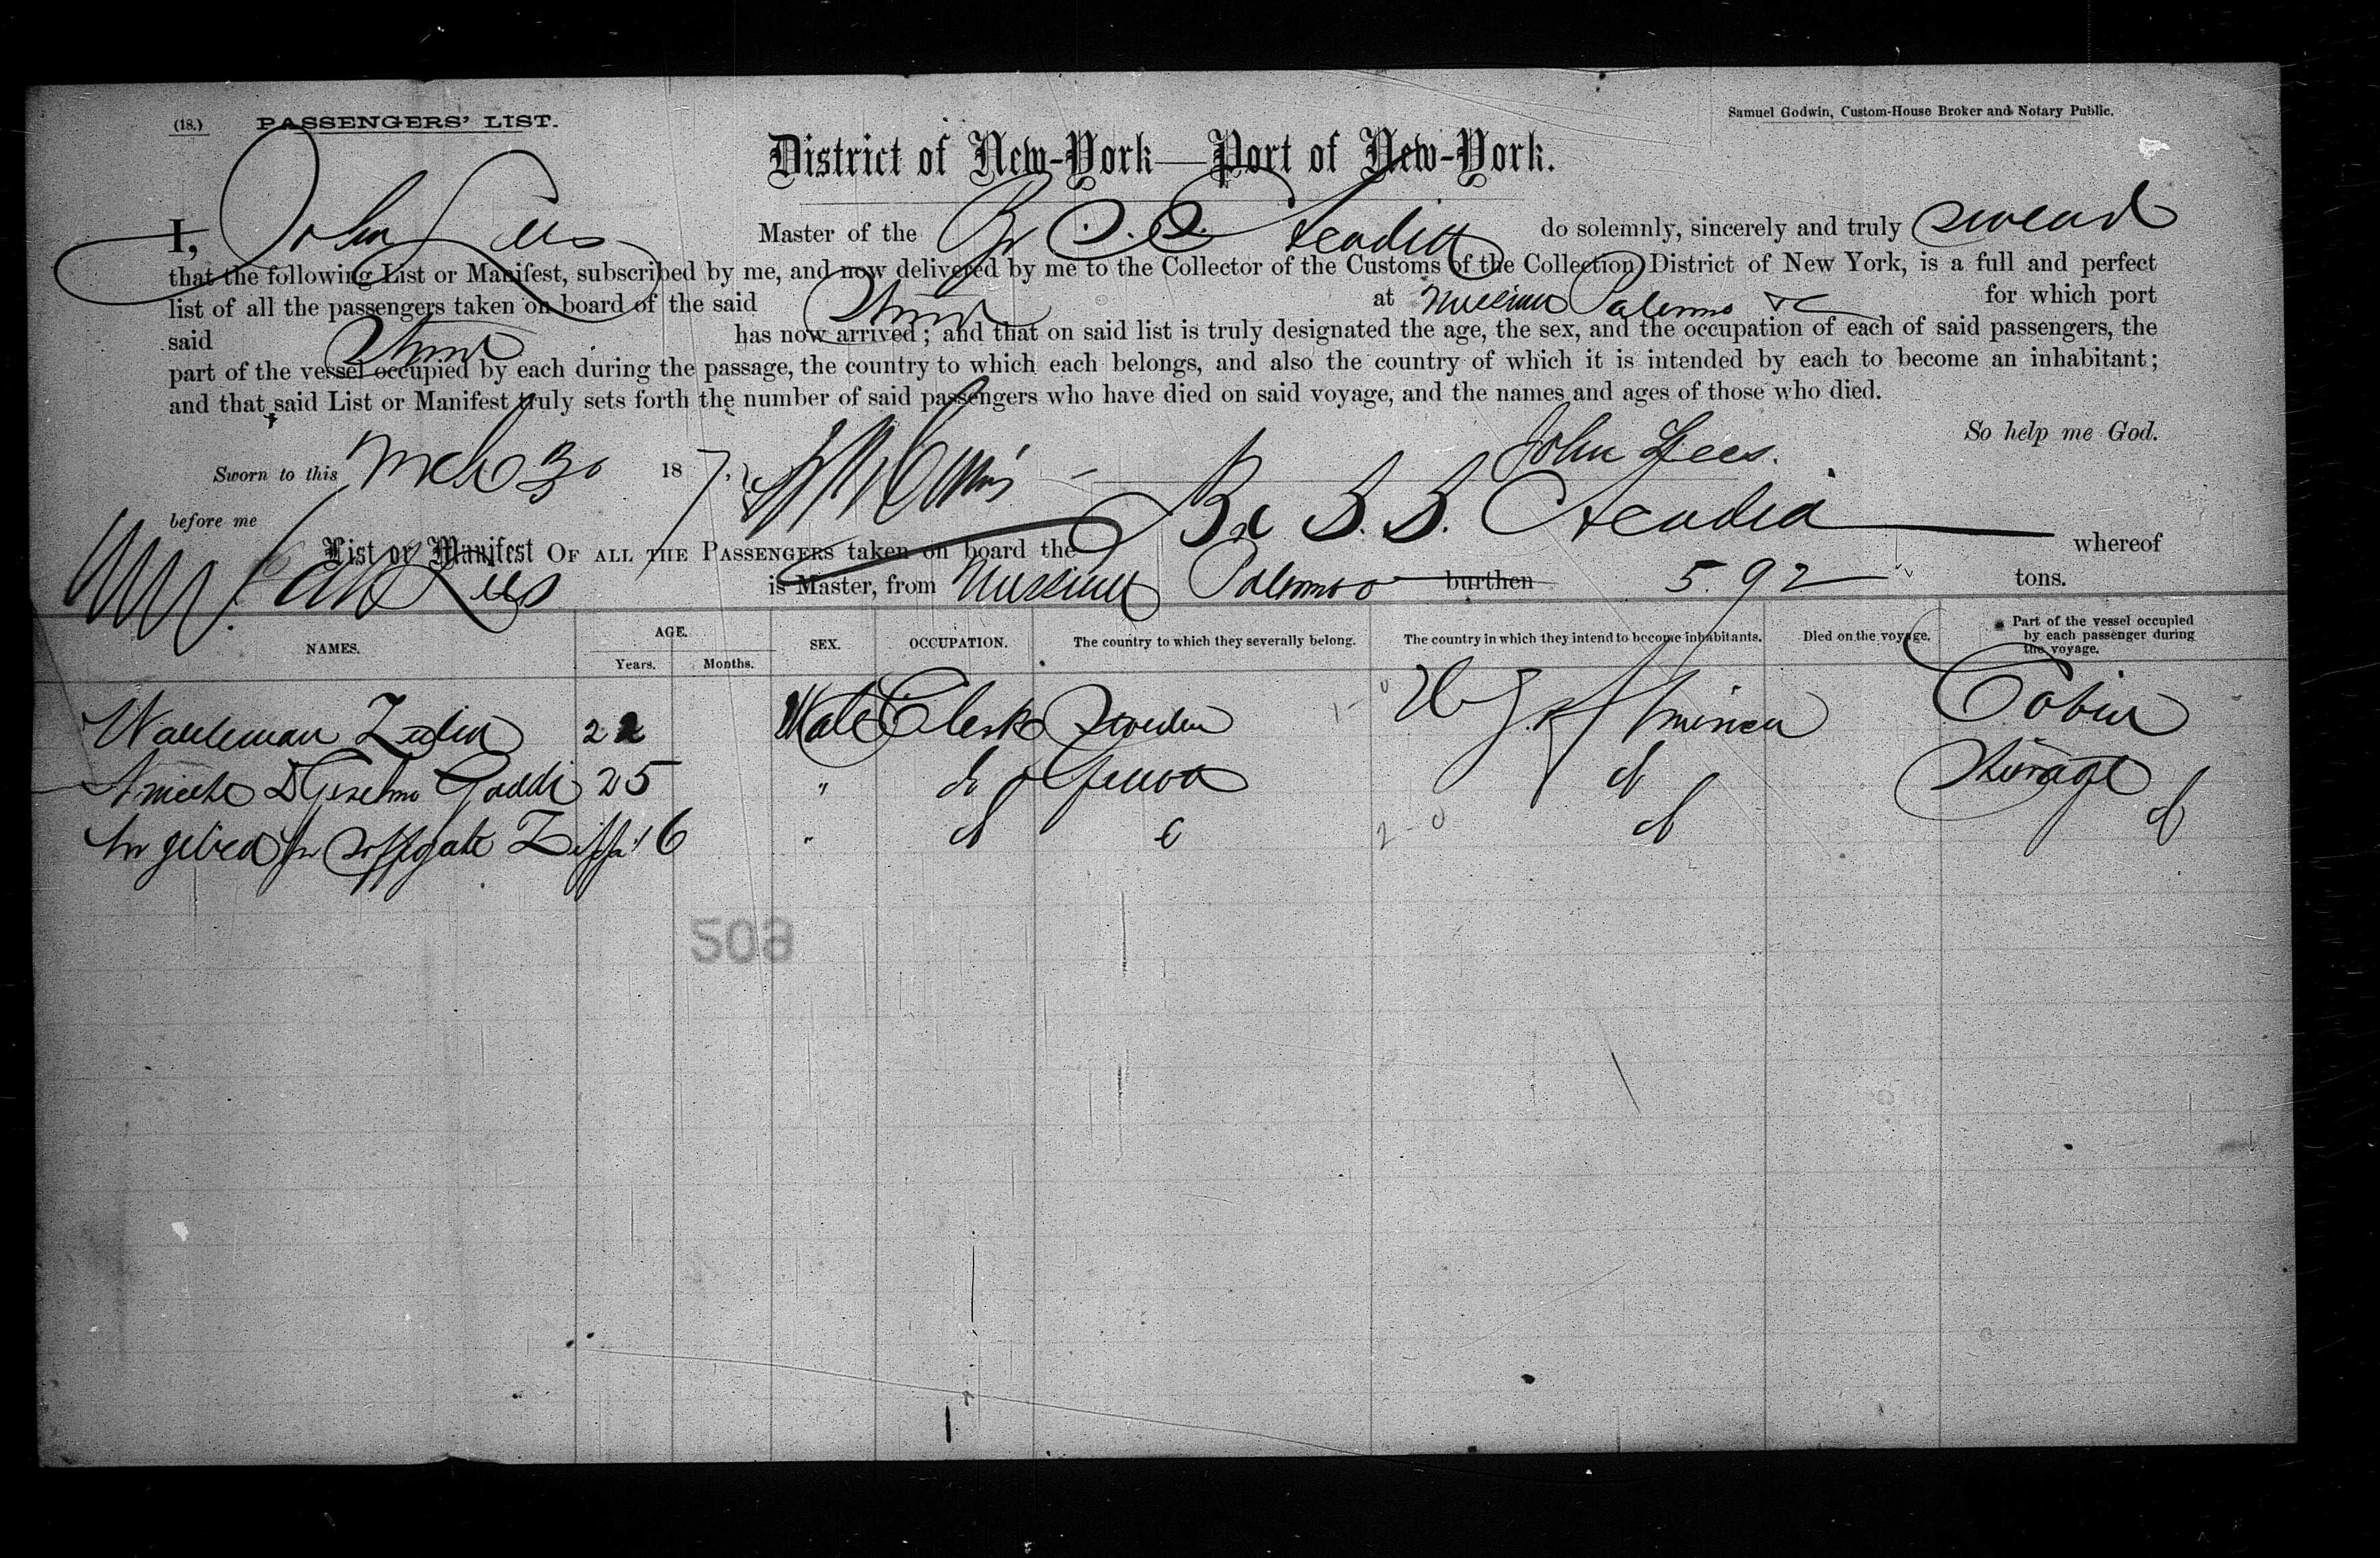 (18.) PASSENGERS' LIST.
Samuel Godwin, Custom-House Broker and Notary Public.
District of New-York—Port of New-York.
I, John Lees Master of the Br S.S. Acadia do solemnly, sincerely and truly swear
that the following List or Manifest, subscribed by me, and now delivered by me to the Collector of the Customs of the Collection District of New York, is a full and perfect
list of all the passengers taken on board of the said Stmr at Messina Palermo &c for which port
said Stmr has now arrived; and that on said list is truly designated the age, the sex, and the occupation of each of said passengers, the
part of the vessel occupied by each during the passage, the country to which each belongs, and also the country of which it is intended by each to become an inhabitant;
and that said List or Manifest truly sets forth the number of said passengers who have died on said voyage, and the names and ages of those who died.
So help me God.
Sworn to this Mch 30 187 John Lees.
before me
List or Manifest OF ALL THE PASSENGERS taken on board the Br S.S. Acadia whereof
Lees is Master, from Messina Palermo burthen 592 tons.
NAMES. AGE. Years. Months. SEX. OCCUPATION. The country to which they severally belong. The country in which they intend to become inhabitants. Died on the voyage. Part of the vessel occupied by each passenger during the voyage.
22 Male Clerk Sweden America Cabin
25 " do Genoa do Steerage
16 " do do do
503